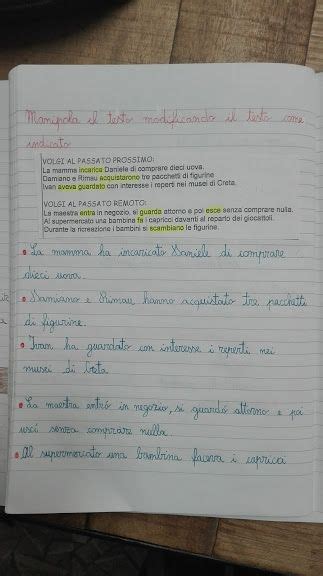 Manipola il testo modificando il testo come
indicato
VOLGI AL PASSATO PROSSIMO:
La mamma incarica Daniele di comprare dieci uova.
Damiano e Rimau acquistarono tre pacchetti di figurine
Ivan aveva guardato con interesse i reperti nei musei di Creta.
VOLGI AL PASSATO REMOTO:
La maestra entra in negozio, si guarda attorno e poi esce senza comprare nulla.
Al supermercato una bambina fa i capricci davanti al reparto dei giocattoli.
Durante la ricreazione i bambini si scambiano le figurine.
La mamma ha incaricato Daniele di comprare
dieci uova.
Damiano e Rimau hanno acquistato tre pacchetti
di figurine.
Ivan ha guardato con interesse i reperti nei
musei di Creta
La maestra entrò in negozio, si guardò attorno e poi
uscì senza comprare nulla.
Al supermercato una bambina faceva i capricci